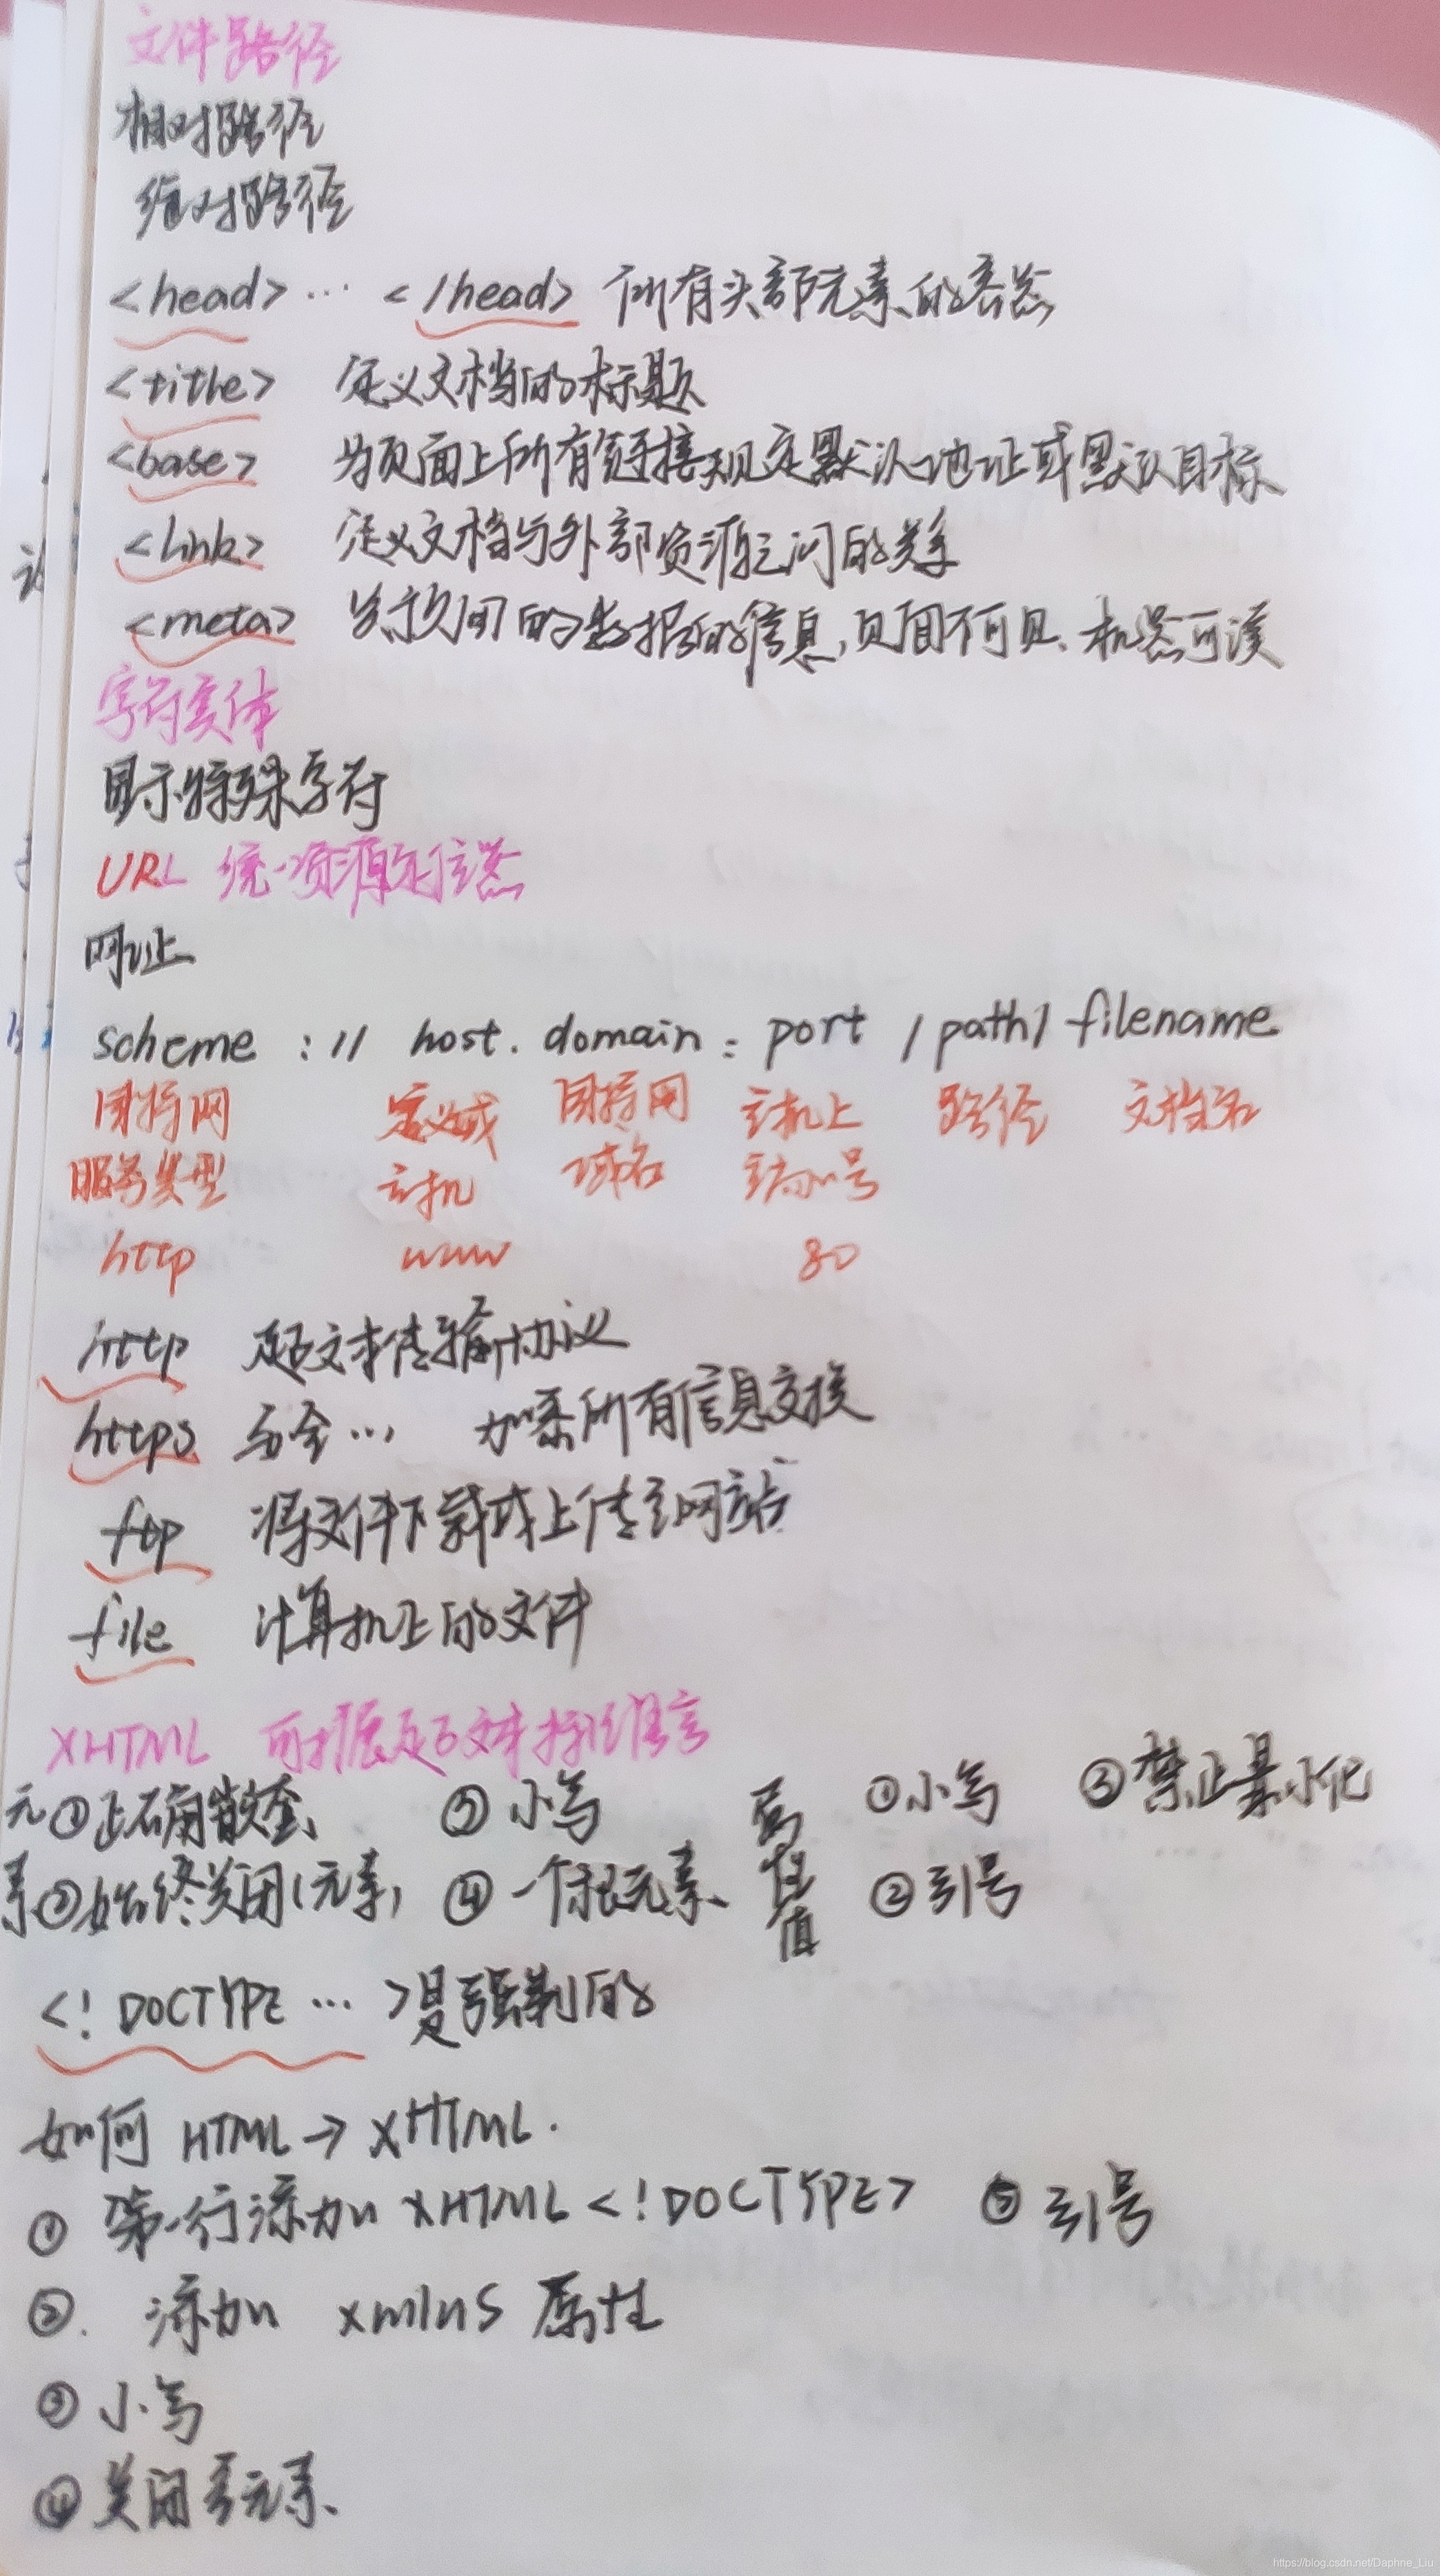 文件路径
相对路径
绝对路径
<head> … </head> 所有头部元素的容器
<title> 定义文档的标题
<base> 为页面上所有链接规定默认地址或默认目标
<link> 定义文档与外部资源之间的关系
<meta> 的数据的信息,页面不可见、机器可读
字符实体
显示特殊字符
URL 统一资源定位器
网址
scheme :// host. domain : port / path / filename
因特网 定义域 因特网 主机上 路径 文档名
服务类型 主机 域名 端口号
http www 80
http 超文本传输协议
https 安全… 加密所有信息交换
ftp 将文件下载或上传至网站
file 计算机上的文件
XHTML 可扩展超文本标记语言
元 ①正确嵌套 ③小写 属 ①小写 ③禁止最小化
素 ②始终关闭(元素) ④一个根元素 性 ②引号
值
<! DOCTYPE … >是强制的
如何 HTML → XHTML.
① 第一行添加 XHTML <!DOCTYPE> ⑤ 引号
②. 添加 xmlns 属性
③ 小写
④ 关闭空元素
https://blog.csdn.net/Daphne_Liu